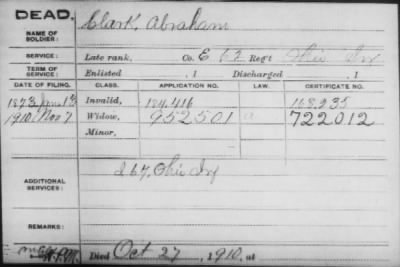 DEAD,
NAME OF SOLDIER: Clark, Abraham
SERVICE: Late rank, Co. E 63 Reg't Ohio Inf
TERM OF SERVICE: Enlisted , 1 Discharged , 1
DATE OF FILING. CLASS. APPLICATION NO. LAW. CERTIFICATE NO.
1873 June 13 Invalid, 184,416 168,935
1910 Nov 7 Widow, 952501 a 722012
Minor,
ADDITIONAL SERVICES: 267, Ohio Inf
REMARKS:
Died Oct 27, 1910, at